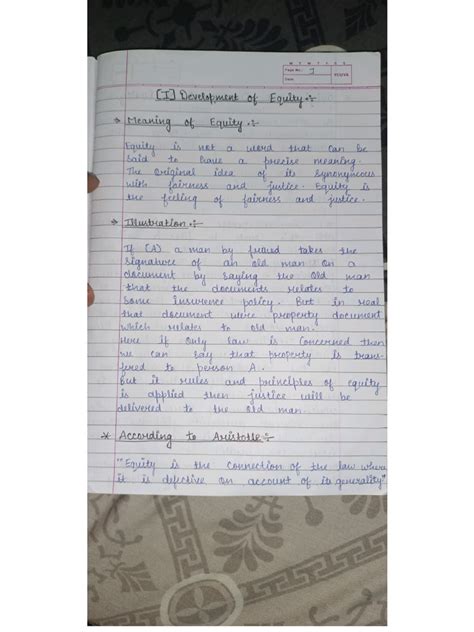 M T W T F S S
Page No.: 1
Date:
YOUVA
[I] Development of Equity :-
→ Meaning of Equity :-
Equity is not a word that can be
said to have a precise meaning.
The original idea of its synonymous
with fairness and justice. Equity is
the feeling of fairness and justice.
→ Illustration :-
If (A) a man by fraud takes the
signature of an old man on a
document by saying the old man
that the documents relates to
some insurence policy. But in real
that document were property document
which relates to old man.
Here if only law is concerned then
we can say that property is trans-
fered to person A.
But if rules and principles of equity
is applied then justice will be
delivered to the old man.
* According to Aristotle :-
"Equity is the connection of the law where
it is defective on account of its generality"